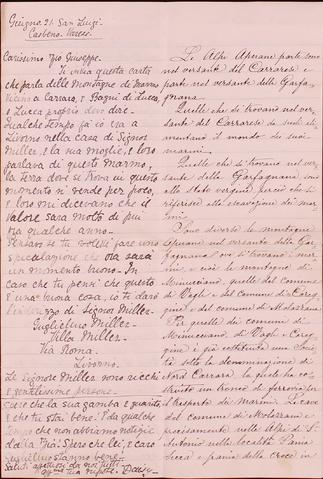 Giugno 21. San Luigi.
Casbeno. Varese.
Carissimo Zio Giuseppe.
Ti invio questa carta
che parla delle Montagne di marmo
vicino a Carrara, e Bagni di Lucca,
e Lucca proprio devo dire.
Qualche tempo fa io era a
Livorno nella casa di Signor
Miller, e la sua moglie, e loro
parlava di questo marmo,
la terra dove si trova in questo
momento si vende per poco,
e loro mi dicevano che il
valore sarà molto di più
tra qualche anno.
Pensavo se tu volessi fare una
speculazione che ora sarà
un momento buono. In
caso che tu pensi che questo
è una buona cosa, io ti darò
l'indirizzo di Signor Miller.
Guglielmo Miller.
Villa Miller.
Via Roma.
Livorno.
Le Signore Miller sono ricchi
e gentilissime persone.
Spero che la sua gamba è guarita,
e che tu stai bene. È da qualche
che non abbiamo notizie
da la Zia. Spero che lei, e caro
Guglielmo stanno bene.
Saluti affettuosi da noi tutti
Le Alpi Apuane parte sono
nel versante del Carrarese e
parte nel versante della Garfa-
gnana.
Quelle che si trovano nel ver-
sante del Carrarese da secoli ali-
mentano il mondo dei suoi
marmi.
Quelle che si trovano nel ver-
sante della Garfagnana sono
allo stato vergine perciò che si
riferisce alla escavazione dei mar-
mi.
Sono diverse le montagne
Apuane nel versante della Gar-
fagnana ove si trovano i mar-
mi, e cioè le montagne di
Minucciano, quelle del comune
di Vagli e del comune di Careg-
gine e del comune di Molazzana.
Per quelle dei comuni di
Minucciano, di Vagli e Careg-
gine è già costituita una Socie-
tà sotto la denominazione di
Nord Carrara, la quale ha co-
struito un tronco di ferrovia per
il trasporto dei marmi. Le cave
del comune di Molazzana e
precisamente nelle Alpi di S.
Antonio nelle località Pania
Secca e Pania della Croce in